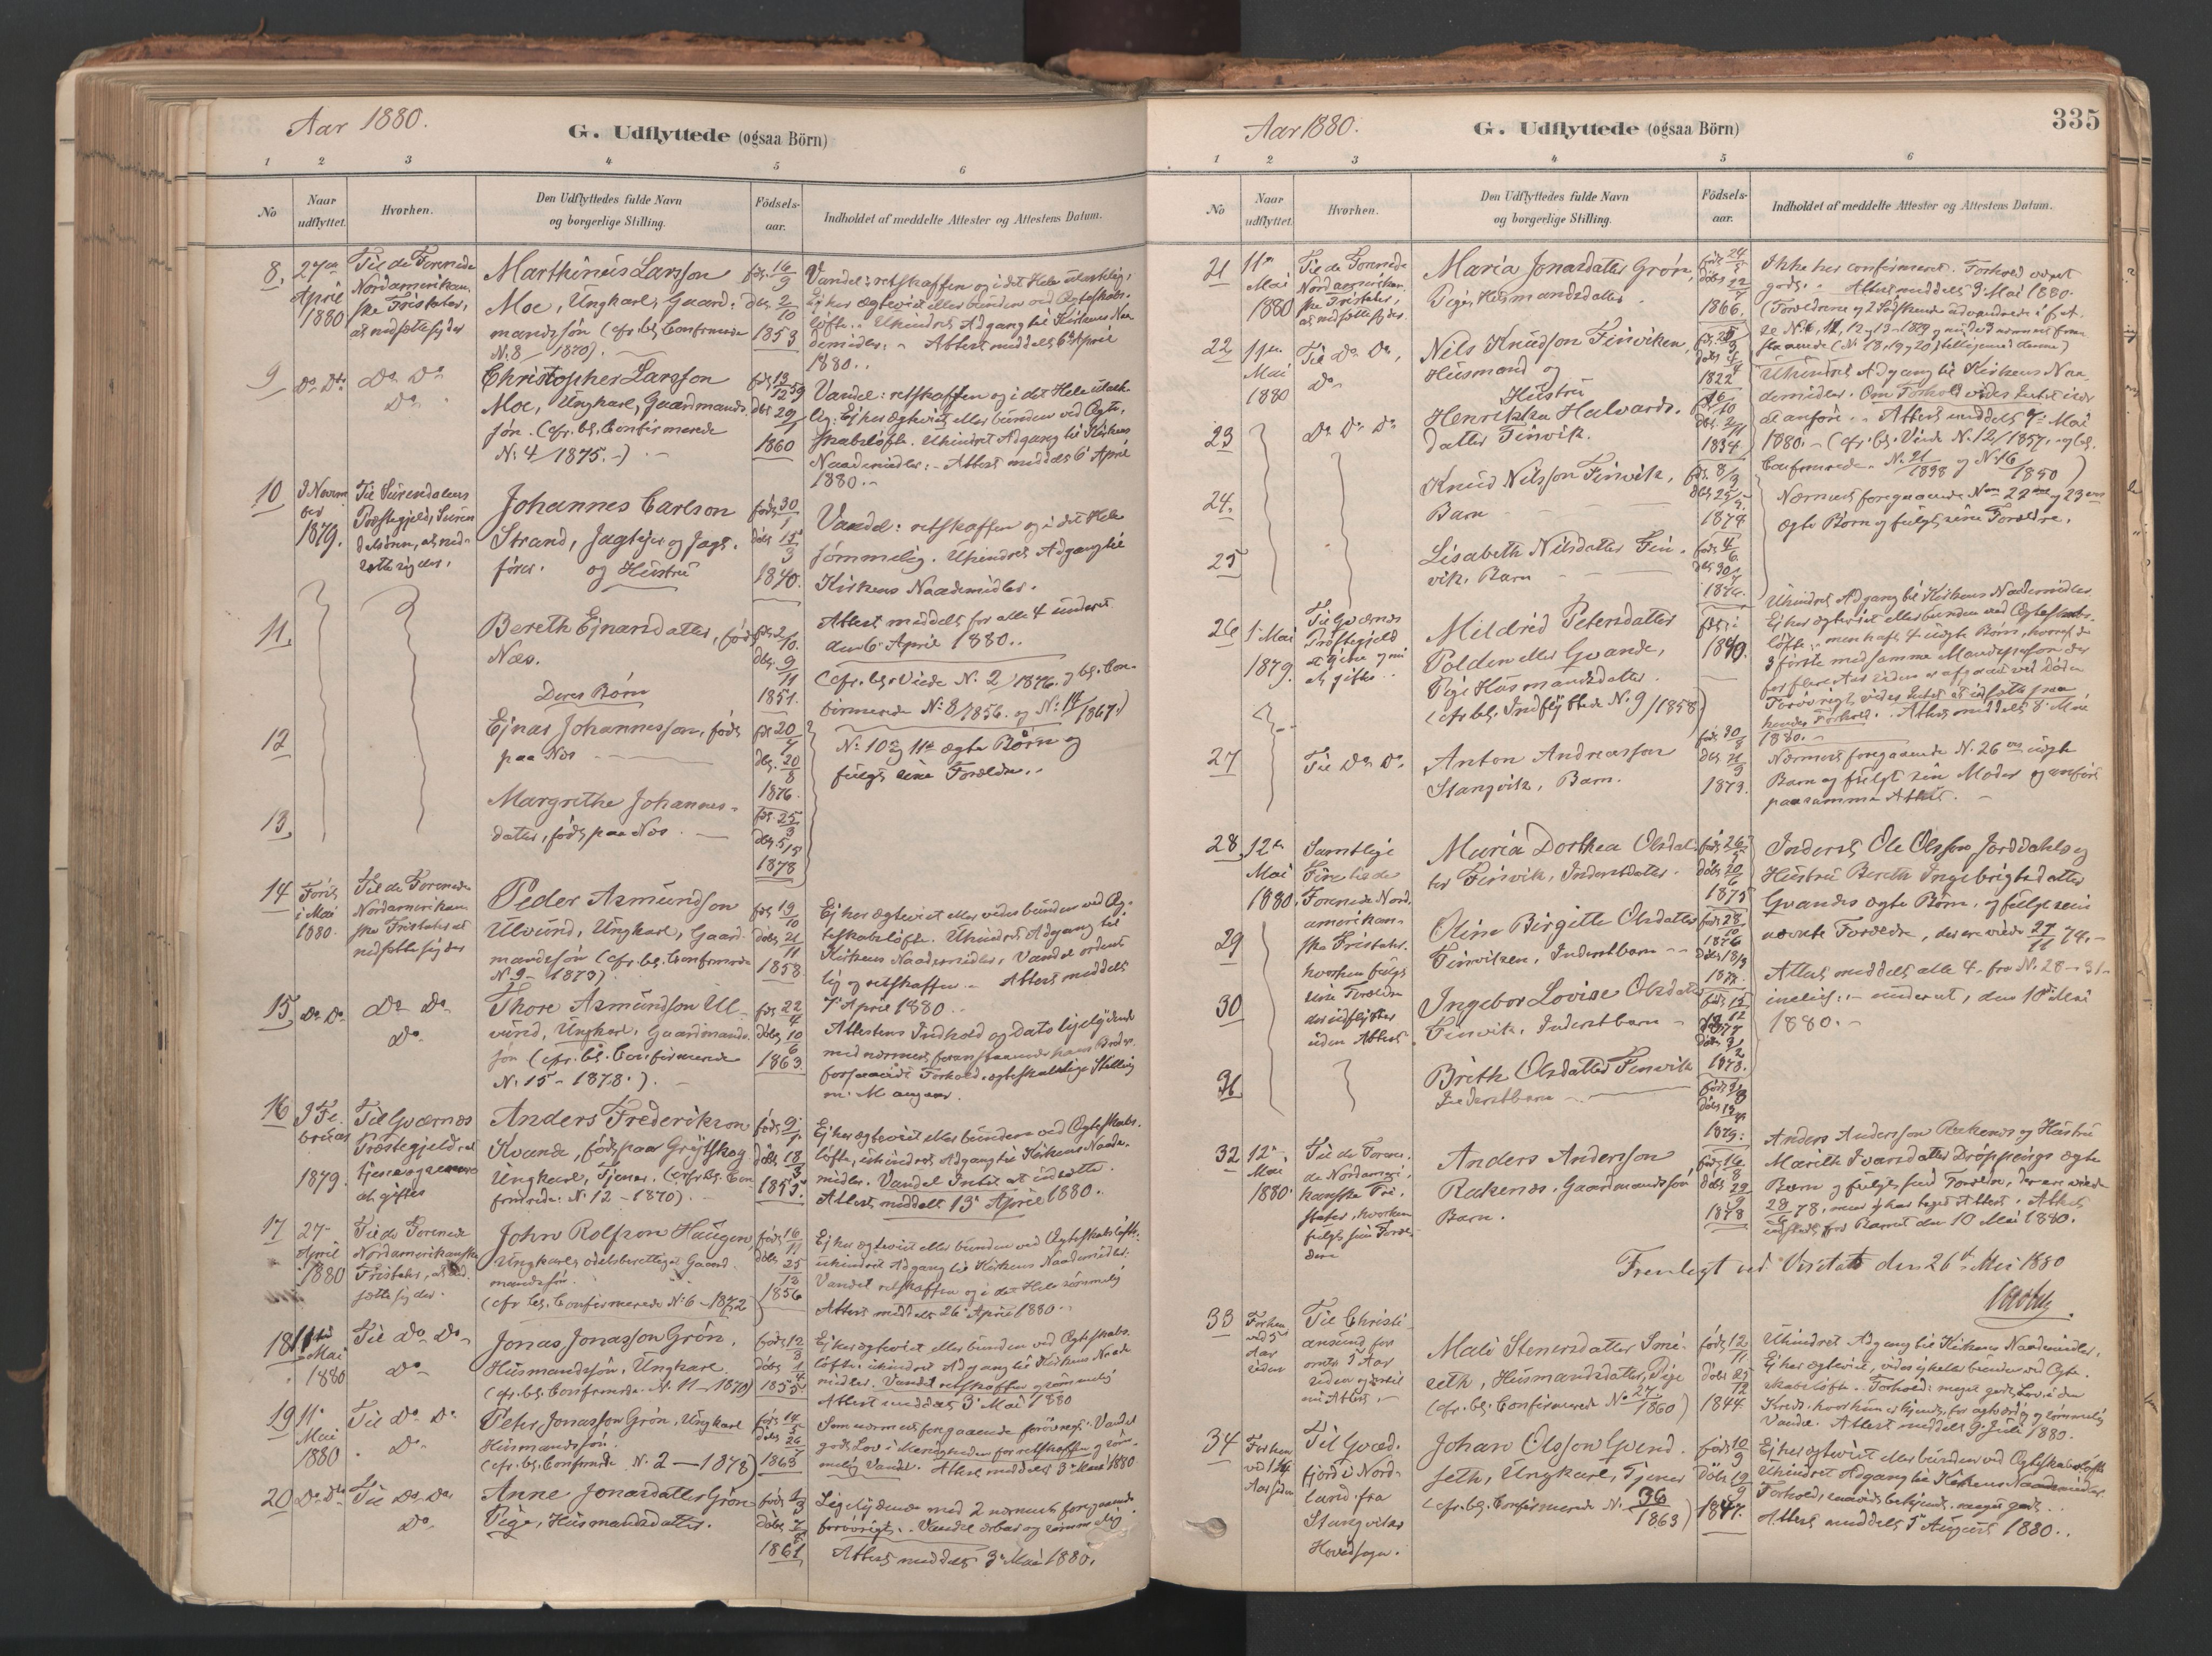 Aar 1880.
G. Udflyttede (ogsaa Börn)
1 2 3 4 5 6
No
Naar udflyttet.
Hvorhen.
Den Udflyttedes fulde Navn og borgerlige Stilling.
Födsels-aar.
Indholdet af meddelte Attester og Attestens Datum.
8.
27de
April
1880
Til de Forenede
Nordamerikan-
ske Fristater,
at nedsætte sig der
Marthinus Larsson
Moe, Ungkarl, Gaard-
mandssøn (cfr. bl. Confirmerede
N. 8/1870).
fød. 16/9
døbt 2/10
1853
Vandel: retskaffen og i det Hele
Ej har ægteviet eller bunden ved Ægteskabs-
løfte. Uhindret Adgang til Kirkens Naa-
demidler. - Attest meddelt 6 April
1880.
9
Do Do
Do Do
Do
Christopher Larsson
Moe, Ungkarl, Gaardmands-
søn. (cfr. bl. Confirmerede
N. 4/1875.-)
fød. 13/12 59
døbt 29/1
1860
Vandel: retskaffen og i det Hele
Ej har ægteviet eller bunden ved Ægte-
skabsløfte. Uhindret Adgang til Kirkens
Naademidler: - Attest meddelt 6 April
1880.-
10
Novem
ber
1879.
Til Surendalens
Præstegjeld,
at ned-
sætte sig der.
Johannes Carlson
Strand, Jagtejer og Jagt-
fører. og Hustru
født 30/1
døbt 15/3
1840.
Vandel: retskaffen og i det Hele
sømmelig. Uhindret Adgang til
Kirkens Naademidler.
Attest meddelt for alle 4 under et
den 6 April 1880..
11.
Bereth Ejnarsdatter, født
Næs.
Deres Børn
fød 2/10.
døbt. 9/11
1851.
(cfr. bl. Viede N. 2/1876. og bl. Con-
firmerede N. 8/1856. og N. 14/1867.)
12
Ejnar Johannesson, født
paa Næs
fød 20/7
døbt. 20/8
1876.
N. 10 og 11 ægte Børn og
fulgt sine Forældre..
13
Margrethe Johannes-
datter, født paa Næs
fød 25/3
døbt 5/5
1878
14
Først
i Mai
1880.
Til de Forenede
Nordamerikan-
ske Fristater at
nedsætte sig der
Peder Asmundson
Ulvund, Ungkarl, Gaard-
mandssøn (cfr. bl. Confirmerede
N. 9 - 1873)
fød 19/10
døbt 21/11
1858
Ej har ægteviet eller vides bunden ved Æg-
teskabsløfte. Uhindret Adgang til
Kirkens Naademidler, Vandel ordent-
lig og retskaffen. - Attest meddelt
7 April 1880..
15
Do Do
Do Do
Do
Thore Asmundson Ul-
vund, Ungkarl, Gaardmands-
søn (cfr. bl. Confirmerede
N. 15 - 1878.)
fød 22/4
døbt 10/6
1863
Attestens Indhold og Dato ligelydende
med nærmest foranstaaende hans Broder
forsaavidt Forhold, ægteskabelige Stilling
m. M. angaar.
16
3 Fe-
bruar
1879.
Til Qværnæs
Præstegjeld at
tjene og senere
at giftes
Anders Frederikson
Kvande, født paa Grøtskog
Ungkarl, Tjener. (cfr. bl. Con
firmerede. N. 12 - 1870).
født 9/1
døbt 18/3
1855.
Ej har ægteviet eller bunden ved Ægteskabs-
løfte, uhindret Adgang til Kirkens Naade-
midler. Vandel Intet at udsætte.
Attest meddelt 13 April 1880.
17
27-
April
1880
Til de Forenede
Nordamerikanske
Fristater, at ned-
sætte sig der.
John Rolfson Haugen
Ungkarl, odelsberettiget Gaard-
mandssøn.
(cfr bl. Confirmerede N. 6 - 1872)
født 16/11
døbt 25/12
1856
Ej har ægteviet eller bunden ved Ægteskabsløfte:
uhindret Adgang til Kirkens Naademidler.
Vandel retskaffen og i det Hele sømmelig
Attest meddelt 26 April 1880
18
11te
Mai
1880
Til Do Do
Do
Jonas Jonasson Grøn,
Husmandssøn, Ungkarl
(cfr. bl. Confirmerede N. 11 - 1870)
født 12/3
døbt 1/4
1855
Ej har ægteviet eller bunden ved Ægteskabs-
løfte. uhindret Adgang til Kirkens Naade
midler. Vandel retskaffen og sømmelig
Attest meddelt 3 Mai 1880
19
11
Mai
1880
Til Do Do
Do
Peter Jonasson Grøn, Ungkarl
Husmandssøn.
(cfr. bl. Confirmerede N. 2 - 1878)
1863
Som nærmest foregaaende forøvrigt. Vandel
godt Lov i Menigheden for retskaffen og søm-
melig Vandel. Attest meddelt 3 Mai 1880
20
Do Do
Til Do Do
Do
Anne Jonasdatter Grøn
Pige, Husmandsdatter.
1861
Ligelydende med 2 nærmest foregaaende
forøvrigt.. Vandel ærbar og sømmelig
Attest meddelt 3 Mai 1880.
335
Aar 1880.
G. Udflyttede (ogsaa Börn)
1 2 3 4 5 6
No
Naar udflyttet.
Hvorhen.
Den Udflyttedes fulde Navn og borgerlige Stilling.
Födsels-aar.
Indholdet af meddelte Attester og Attestens Datum.
21
11
Mai
1880
Til de Forenede
Nordamerikan-
ske Fristater,
at nedsætte sig der.
Maria Jonasdatter Grøn,
Pige, Husmandsdatter.
1866.
Ikke her confirmeret. Forhold været
godt. - Attest meddelt 3 Mai 1880.
(Forældrene og 2 Sødskende udvandrede i
22
11te
Mai
1880
Til Do Do,
Do
Nils Knudson Finviken,
Husmand og
Hustru
1822
Uhindret Adgang til Kirkens Naa-
demidler. Om Forhold vides Intet
at anføre.. Attest meddelt 7 Mai
1880. - (cfr. bl. Viede N. 12/1857. og bl.
Confirmerede N. 21/1838 og N. 16/1850)
23
Do Do Do
Henrikka Halvards-
datter Finvik.
1834
24.
Knud Nilsson Finvik,
Barn
1874
Nærmest foregaaende N 22 og 23
ægte Børn og fulgt sine Forældre.
25
Lisabeth Nilsdatter Fin-
vik, Barn
26
1 Mai
1879.
Til Qværnæs
Præstegjeld
at tjene og nu
at giftes..
Mildrid Petersdatter
Polden eller Qvande,
Pige Husmandsdatter.
(cfr. bl. Indflyttede N. 9/1858)
født i
1840.
Uhindret Adgang til Kirkens Naademidler
Ej har ægteviet eller bunden ved Ægteskabs-
løfte.. men haft 4 uægte Børn, hvoraf de
3 første med samme Mandsperson der
for flere Aar siden er afgaaet ved Døden
Forøvrigt vides Intet at udsætte paa
hendes Forhold. Attest meddelt 8 Mai
1880.
27
Til Do Do
Anton Andreasson
Stangvik, Barn.
1873.
Nærmest foregaaende N. 26 uægte
Barn og fulgt sin Moder og anført
paa samme Attest.
28
12
Mai
1880.
Samtlige
Fire til de
Forenede Nord
amerikan-
ske Fristater.
hvorhen fulgt
sine Forældre
der udflytter
uden Attest.
Maria Dorthea Olsdat-
ter Finvik, Inderstdatter.
1875
Inderst Ole Olsson Jorddahls og
Hustru Bereth Ingebrigtsdatter
Qvandes ægte Børn, og fulgt sine
nævnte Forældre, der ere viede 27/11 74.-
Attest meddelt alle 4. fra N. 28 - 31-
inclus: - under et, den 10 Mai
1880.-
29
Oline Birgitte Olsdatter
Finviken, Inderstbarn
1876
30
Ingebor Lovise Olsdatter
Finvik, Inderstbarn
31
Brith Olsdatter Finvik
Inderstbarn
1879.
32
12
Mai
1880.
Til de Forene-
de Nordameri-
kanske Fri-
stater, hvorhen
fulgt sine Foræl-
dre
Anders Anderson
Rakenæs, Gaardmandssøn
Barn.
1878
Anders Andersson Rakenæs og Hustru
Marith Ivarsdatter Drøppings ægte
Barn og fulgt sine Forældre, der ere viede
78, men ej har taget Attest. Attest
udstedt for Barnet den 10 Mai 1880.
Fremlagt ved Visitats den 26 Mai 1880
33
Forhen
ved 5
Aar
siden
Til Christi-
ansund for
omtr 5 Aar
siden og
nu Attest.
Mali Stenersdatter Smi-
seth, Husmandsdatter, Pige
(cfr. bl. Confirmerede No 27/1860)
født 12/11
døbt 25/12
1844
Uhindret Adgang til Kirkens Naademidler.
Ej har ægteviet, vides ej heller bunden ved Ægte-
skabsløfte.. Forhold: meget godt, Lov i den
Kreds, hvor hun er kjendt, for agtværdig og sømmelig
Vandel. Attest meddelt 9 Juli 1880.
34
Forhen
ved 14
Aar siden
Til Qvæd-
fjord i Nord-
land. fra
Stangviks
Hovedsogn.
Johan Olsson Qvend-
seth, Ungkarl, Tjener
(cfr. bl. Confirmerede N. 36/1863)
født 10/9
døbt 19/9
1847.
Ej har ægteviet eller bunden ved Ægteskabsløfte
Uhindret Adgang til Kirkens Naademidler
Forhold, saavidt bekjendt, meget godt..
Attest meddelt 5 August 1880..